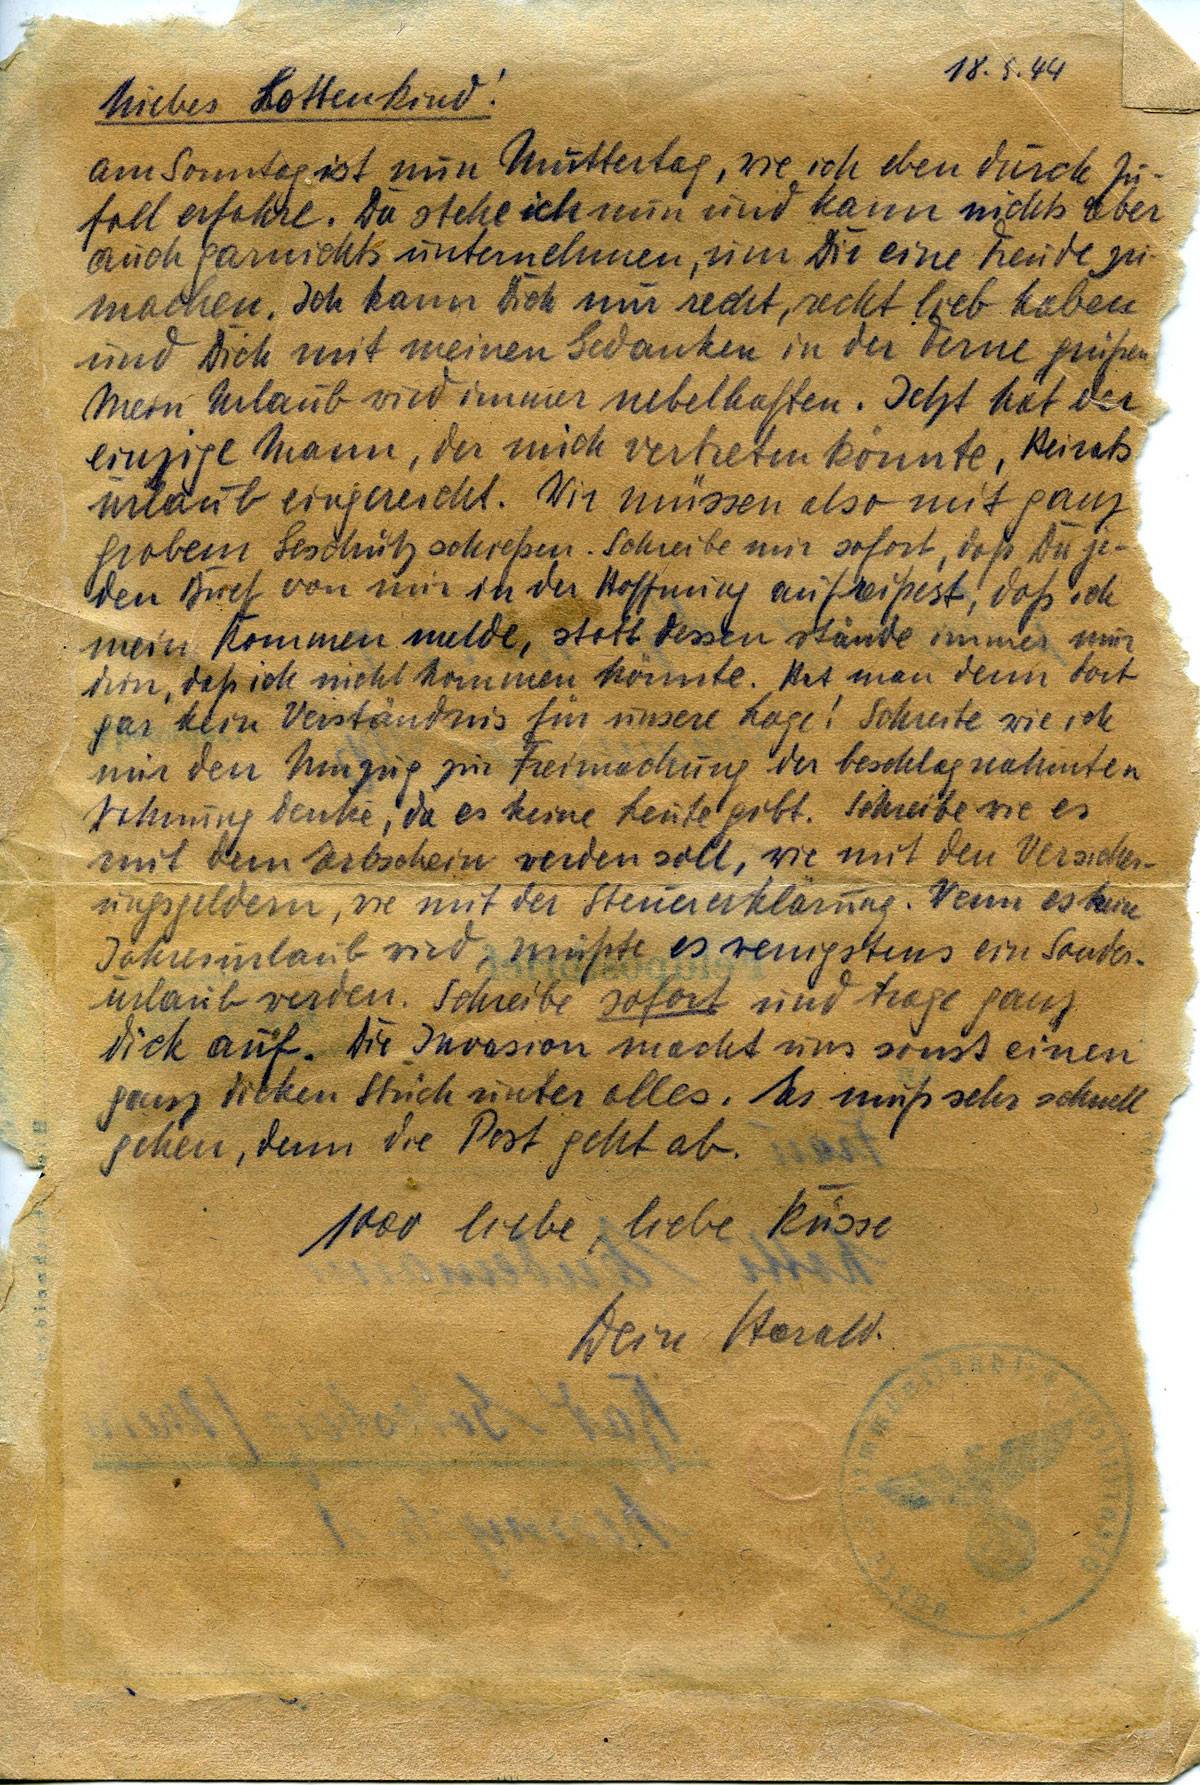 18.5.44
Liebes Lottenkind!
am Sonntag ist nun Muttertag, wie ich eben durch Zu-
fall erfahre. Da stehe ich nun und kann nichts aber
auch garnichts unternehmen, um Dir eine Freude zu
machen. Ich kann Dich nur recht, recht lieb haben
und Dich mit meinen Gedanken in der Ferne grüßen
Mein Urlaub wird immer nebelhaften. Jetzt hat der
einzige Mann, der mich vertreten könnte, Heirats
urlaub eingereicht. Wir müssen also mit ganz
grobem Geschütz schießen. Schreibe mir sofort, daß Du je-
den Brief von mir in der Hoffnung aufreißest, daß ich
mein Kommen melde, statt dessen stände immer nur
drin, daß ich nicht kommen könnte. Hat man denn dort
gar kein Verständnis für unsere Lage! Schreibe wie ich
mir den Umzug zur Freimachung der beschlagnahmten
Wohnung denke, da es keine Leute gibt. Schreibe wie es
mit dem Erbschein werden soll, wie mit den Versicher-
ungsgeldern, wie mit der Steuererklärung. Wenn es kein
Jahresurlaub wird, müßte es wenigstens ein Sonder-
urlaub werden. Schreibe sofort und trage ganz
dick auf. Die Invasion macht uns sonst einen
ganz dicken Strich unter alles. Es muß sehr schnell
gehen, denn die Post geht ab.
1000 liebe, liebe Küsse
Dein Harald.